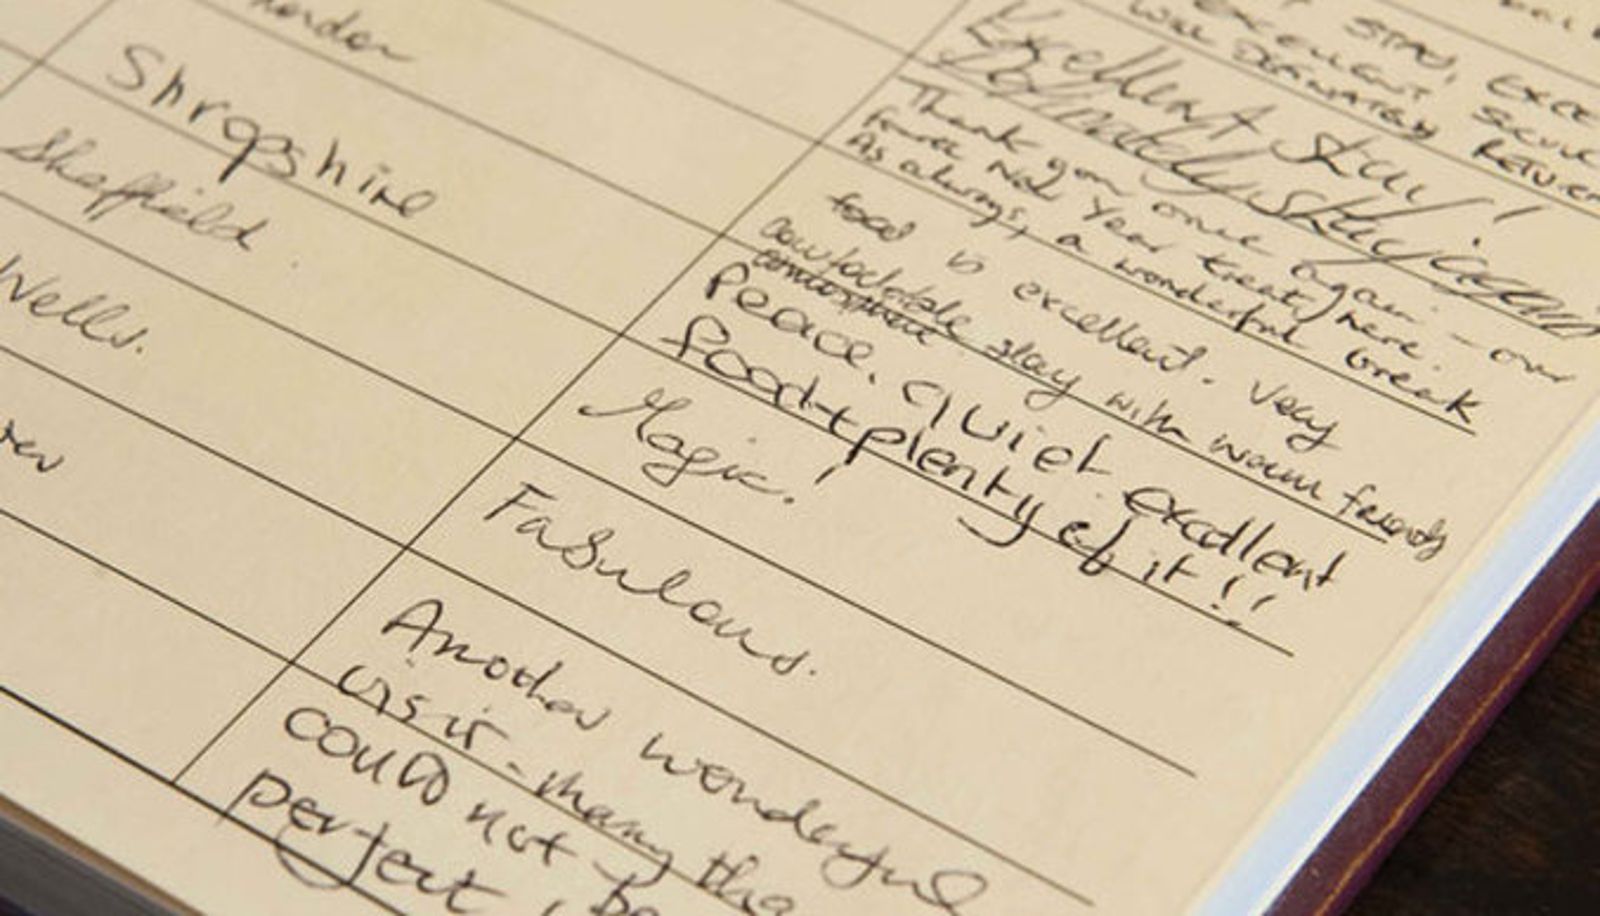 London
Shropshire
Sheffield.
Wells.
STAY, EXCE
EXCELLENT SERVICE
WILL DEFINATELY RETURN
Excellent stay!
Definately
Thank you once again - our
fourth New Year treat here.
As always, a wonderful break
food is excellent. Very
comfortable stay with warm friendly
Peace, quiet excellent
food + plenty of it!!
Magic!
Fabulous.
Another wonderful
visit - many tha
could not be
perfect